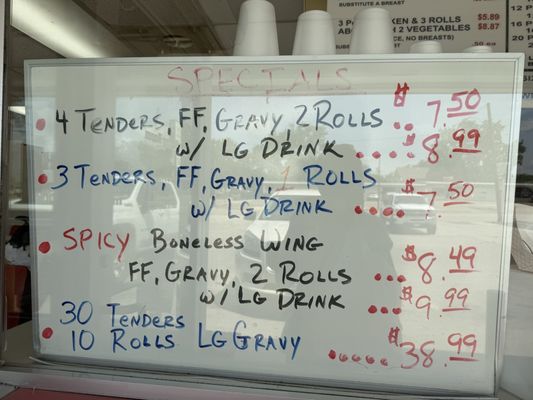 SUBSTITUTE A BREAST
$5.89
$8.87
2 VEGETABLES
SPECIALS
4 TENDERS, FF, GRAVY, 2 ROLLS .. $7.50
w/ LG DRINK .... 8.99
3 TENDERS, FF, GRAVY, 1 ROLLS
w/ LG DRINK ..... $7.50
SPICY BONELESS WING
FF, GRAVY, 2 ROLLS ... $8.49
w/ LG DRINK ... $9.99
30 TENDERS
10 ROLLS LG GRAVY ..... $38.99